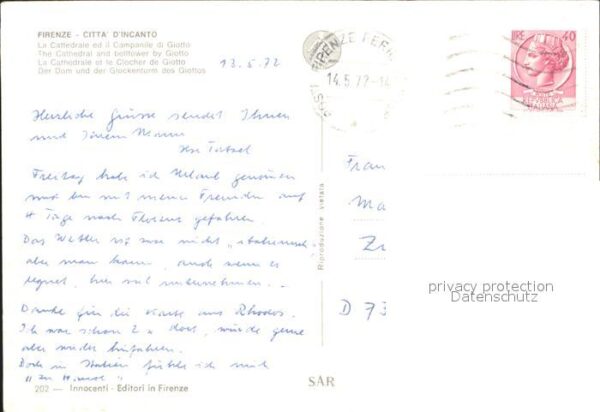 FIRENZE - CITTA' D'INCANTO
La Cattedrale ed il Campanile di Giotto
The Cathedral and belltower by Giotto
La Cathedrale et le Clocher de Giotto
Der Dom und der Glockenturm des Giottos
13.5.72
FIRENZE FERR
14.5.72-14
LIRE 40
REPVBBLICA
ITALIANA
Herzliche Grüsse sendet Ihnen
und Ihrem Mann
Freitag habe ich Urlaub genommen
und bin mit meiner Freundin auf
4 Tage nach Florenz gefahren.
Das Wetter ist zwar nicht „italienisch"
aber man kann, auch wenn es
regnet, hier viel unternehmen...
Danke für die Karte aus Rhodos.
Ich war schon 2 x dort, würde gerne
aber wieder hinfahren.
Doch in Italien fühle ich mich
„zu Hause"
Riproduzione vietata
Frau
Ma
D 73
privacy protection
Datenschutz
202 — Innocenti - Editori in Firenze
SAR